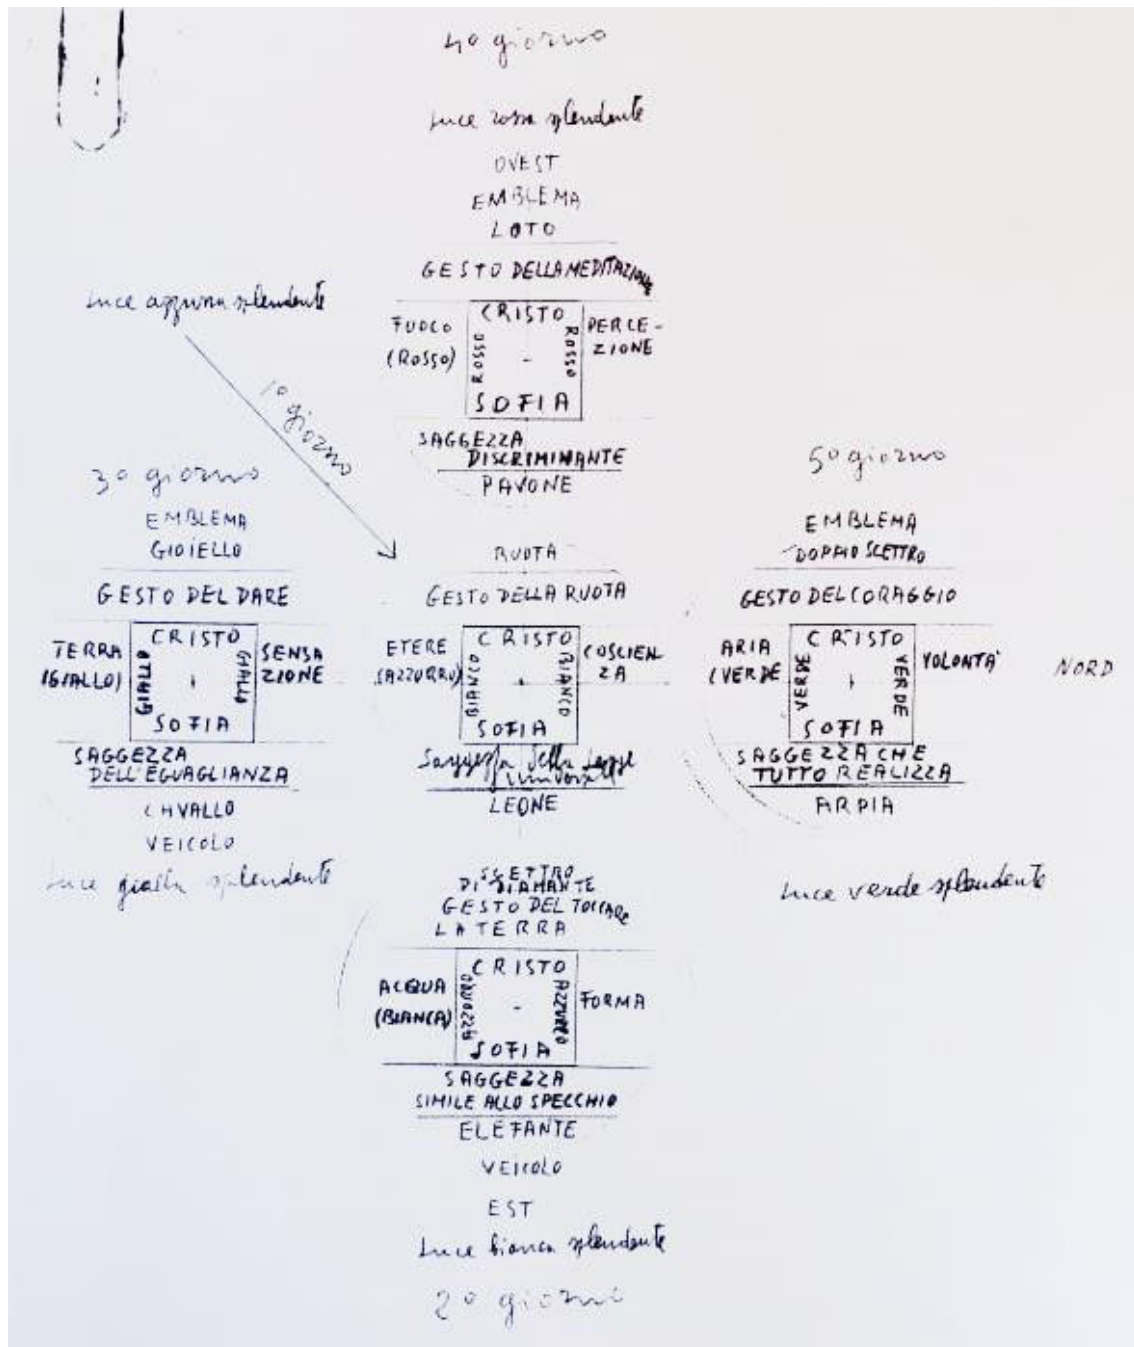 4º giorno
Luce rossa splendente
OVEST
EMBLEMA
LOTO
GESTO DELLA MEDITAZIONE
FUOCO
(ROSSO)
CRISTO
ROSSO
ROSSO
SOFIA
PERCE-
ZIONE
SAGGEZZA
DISCRIMINANTE
PAVONE
Luce azzurra splendente
1º giorno
3º giorno
EMBLEMA
GIOIELLO
GESTO DEL DARE
TERRA
(GIALLO)
CRISTO
GIALLO
GIALLO
SOFIA
SENSA
ZIONE
SAGGEZZA
DELL'EGUAGLIANZA
CAVALLO
VEICOLO
Luce gialla splendente
RUOTA
GESTO DELLA RUOTA
ETERE
(AZZURRO)
CRISTO
BIANCO
BIANCO
SOFIA
COSCIEN
ZA
Saggezza della Legge
universale
LEONE
5º giorno
EMBLEMA
DOPPIO SCETTRO
GESTO DEL CORAGGIO
ARIA
(VERDE
CRISTO
VERDE
VERDE
SOFIA
VOLONTÀ
NORD
SAGGEZZA CHE
TUTTO REALIZZA
ARPIA
Luce verde splendente
SCETTRO
DI DIAMANTE
GESTO DEL TOCCARE
LA TERRA
ACQUA
(BIANCA)
CRISTO
AZZURRO
AZZURRO
SOFIA
FORMA
SAGGEZZA
SIMILE ALLO SPECCHIO
ELEFANTE
VEICOLO
EST
Luce bianca splendente
2º giorno